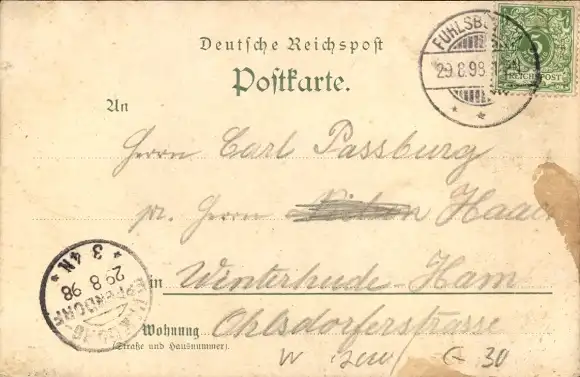 Deutsche Reichspost
Postkarte.
FUHLSB
29.8.98
5
REICHSPOST
An
Herrn Carl Passburg
pr. Herrn Haa
3-4N
29.8.98
in Winterhude-Ham
Wohnung Ohlsdorferstrasse
(Straße und Hausnummer).
W 30